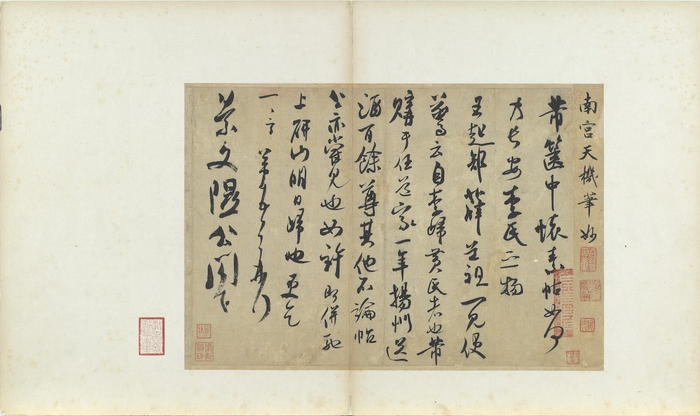 南宮天機筆妙
芾篋中懷素帖如何
乃長安李氏之物
王起部薛道祖一見便
驚云自李歸黃氏者也芾
購于任道家一年揚州送
酒百餘尊其他不論帖
公亦嘗見也如許即併馳
上研山明日歸也更乞
一言 芾頓首再拜
景文隰公閣下